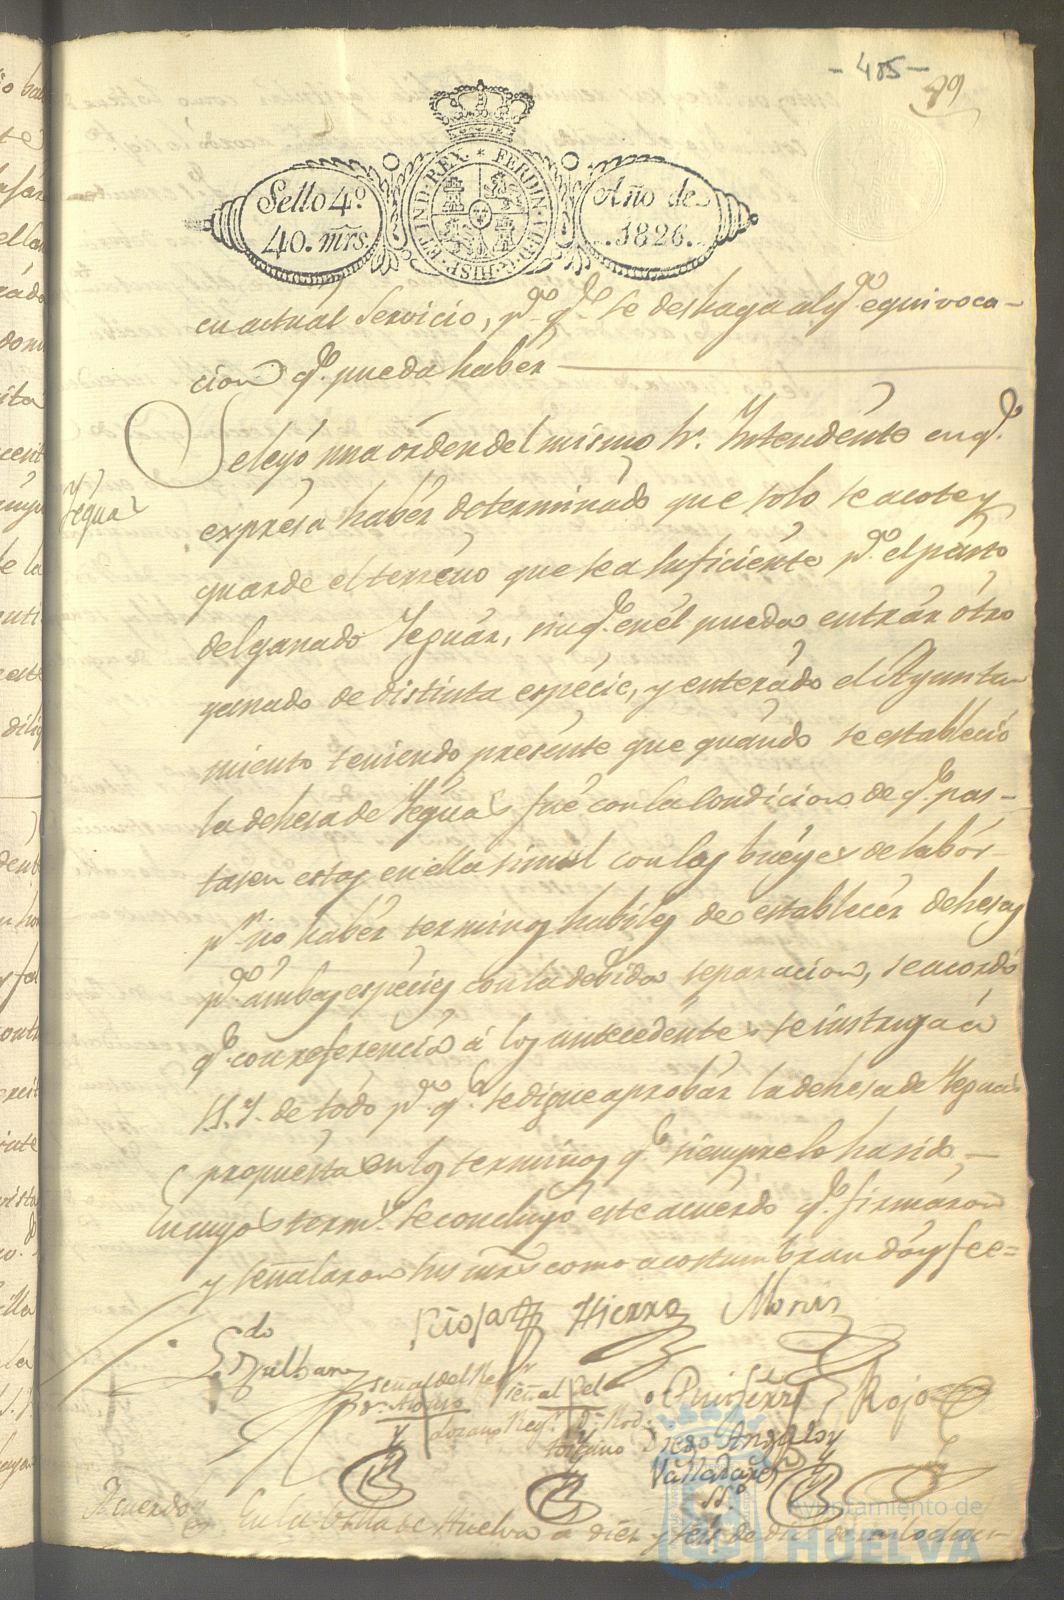 - 485 -
99
Sello 4º
40. mrs.
HISP. ET IND. REX * FERDIN. VII. D. G.
Año de
1826.
cu actual Servicio, pª qe. se deshaga alge. equivoca-
cion qe. pueda haber
Se leyó una órden del mismo Sr. Intendente en qe.
Yeguas
expresa haber determinado que solo se acote y
guarde el terreno que sea suficiente pª. el pasto
del ganado Yeguar, sin qe. en él pueda entrar ótro
ganado de distinta espécie, y enterádo el Ayunta
miento teniendo presente que quándo se estableció
la dehesa de Yeguas fué con la Condicion de qe. pas-
tasen estas en ella simul con los buéyes de labór
pr. no haber terminos habiles de establecer dehesas
pª. ambas espécies con la debida separacion, se acordó
qe. con referencia á los antecedentes se instruya á
S.Y. de todo pª. qe. se digne aprobar la dehesa de Yeguas
propuesta en los terminos qe. siempre lo ha sido —
En cuyos term.s se concluyó este acuérdo qe. firmáron
y señalaron sus mrs como acostumbran dóy fee=
Ldo
Rioja Hierro Morin
señal del Regr
Señal del
Rojo
Dn. Alonso
Lozano Regr. Dn. Rod.
Toscano
Diego Anzaloy
Valladares
SSno.
Acuerdo
En la Villa de Huelva á diez y seis de
Ayuntamiento de
HUELVA